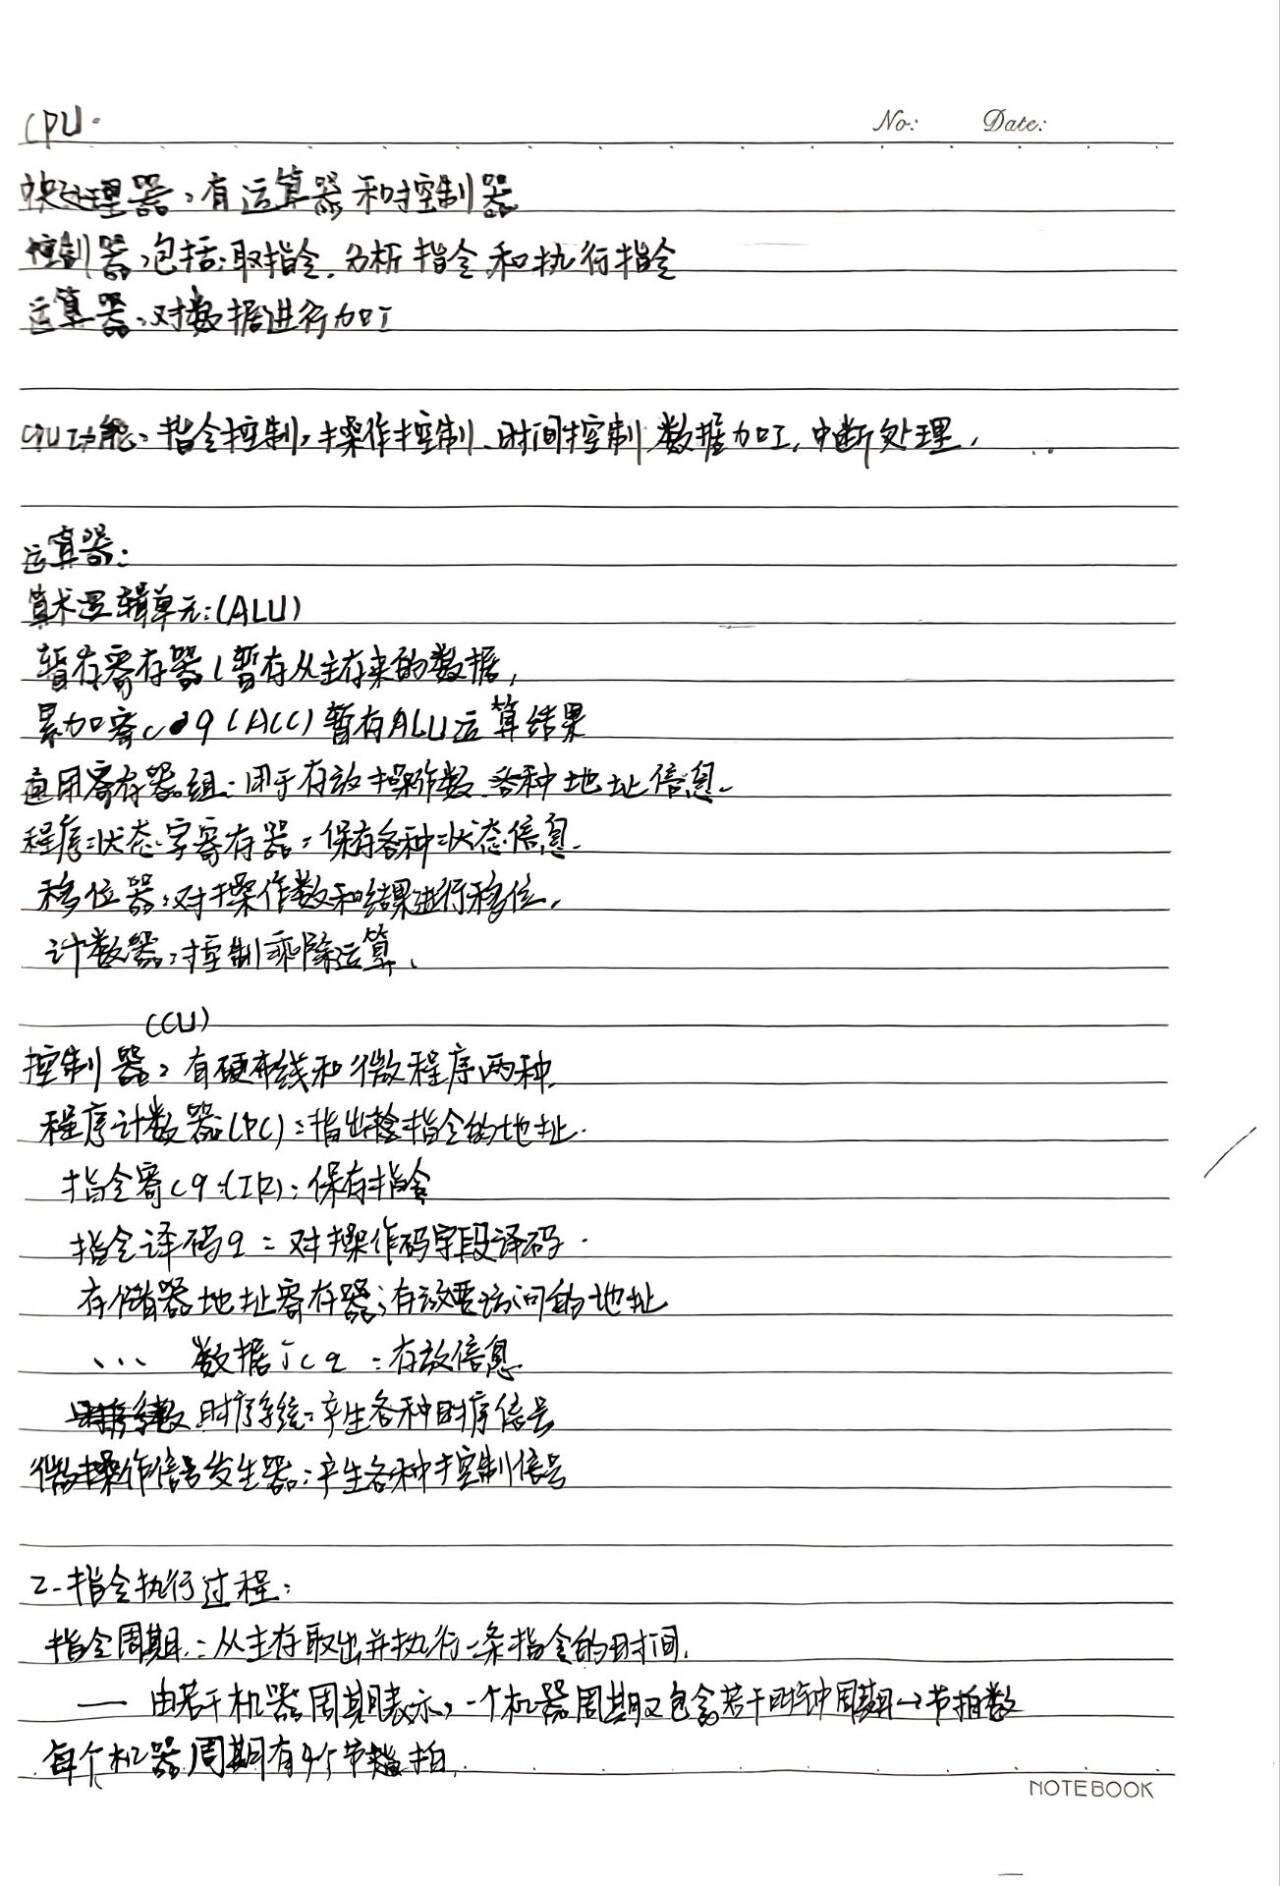 CPU.
No: Date:
央处理器:有运算器和控制器
控制器:包括:取指令.分析指令和执行指令
运算器:对数据进行加工
CPU功能:指令控制,操作控制、时间控制 数据加工,中断处理,
运算器:
算术逻辑单元:(ALU)
暂存寄存器(暂存从主存来的数据,
累加寄cq(ACC)暂存ALU运算结果
通用寄存器组:用于存放操作数、各种地址信息.
程序状态字寄存器:保存各种状态信息.
移位器:对操作数和结果进行移位,
计数器:控制乘除运算、
(CU)
控制器:有硬布线和微程序两种.
程序计数器(PC):指出指令的地址.
指令寄cq:(IR):保存指令
指令译码q:对操作码字段译码.
存储器地址寄存器:存放要访问的地址
、、、 数据 cq:存放信息
时序系统:产生各种时序信号
微操作信号发生器:产生各种控制信号
2.指令执行过程:
指令周期:从主存取出并执行一条指令的时间.
— 由若干机器周期表示,一个机器周期又包含若干时钟周期→节拍数
每个机器周期有4个节拍.
NOTEBOOK